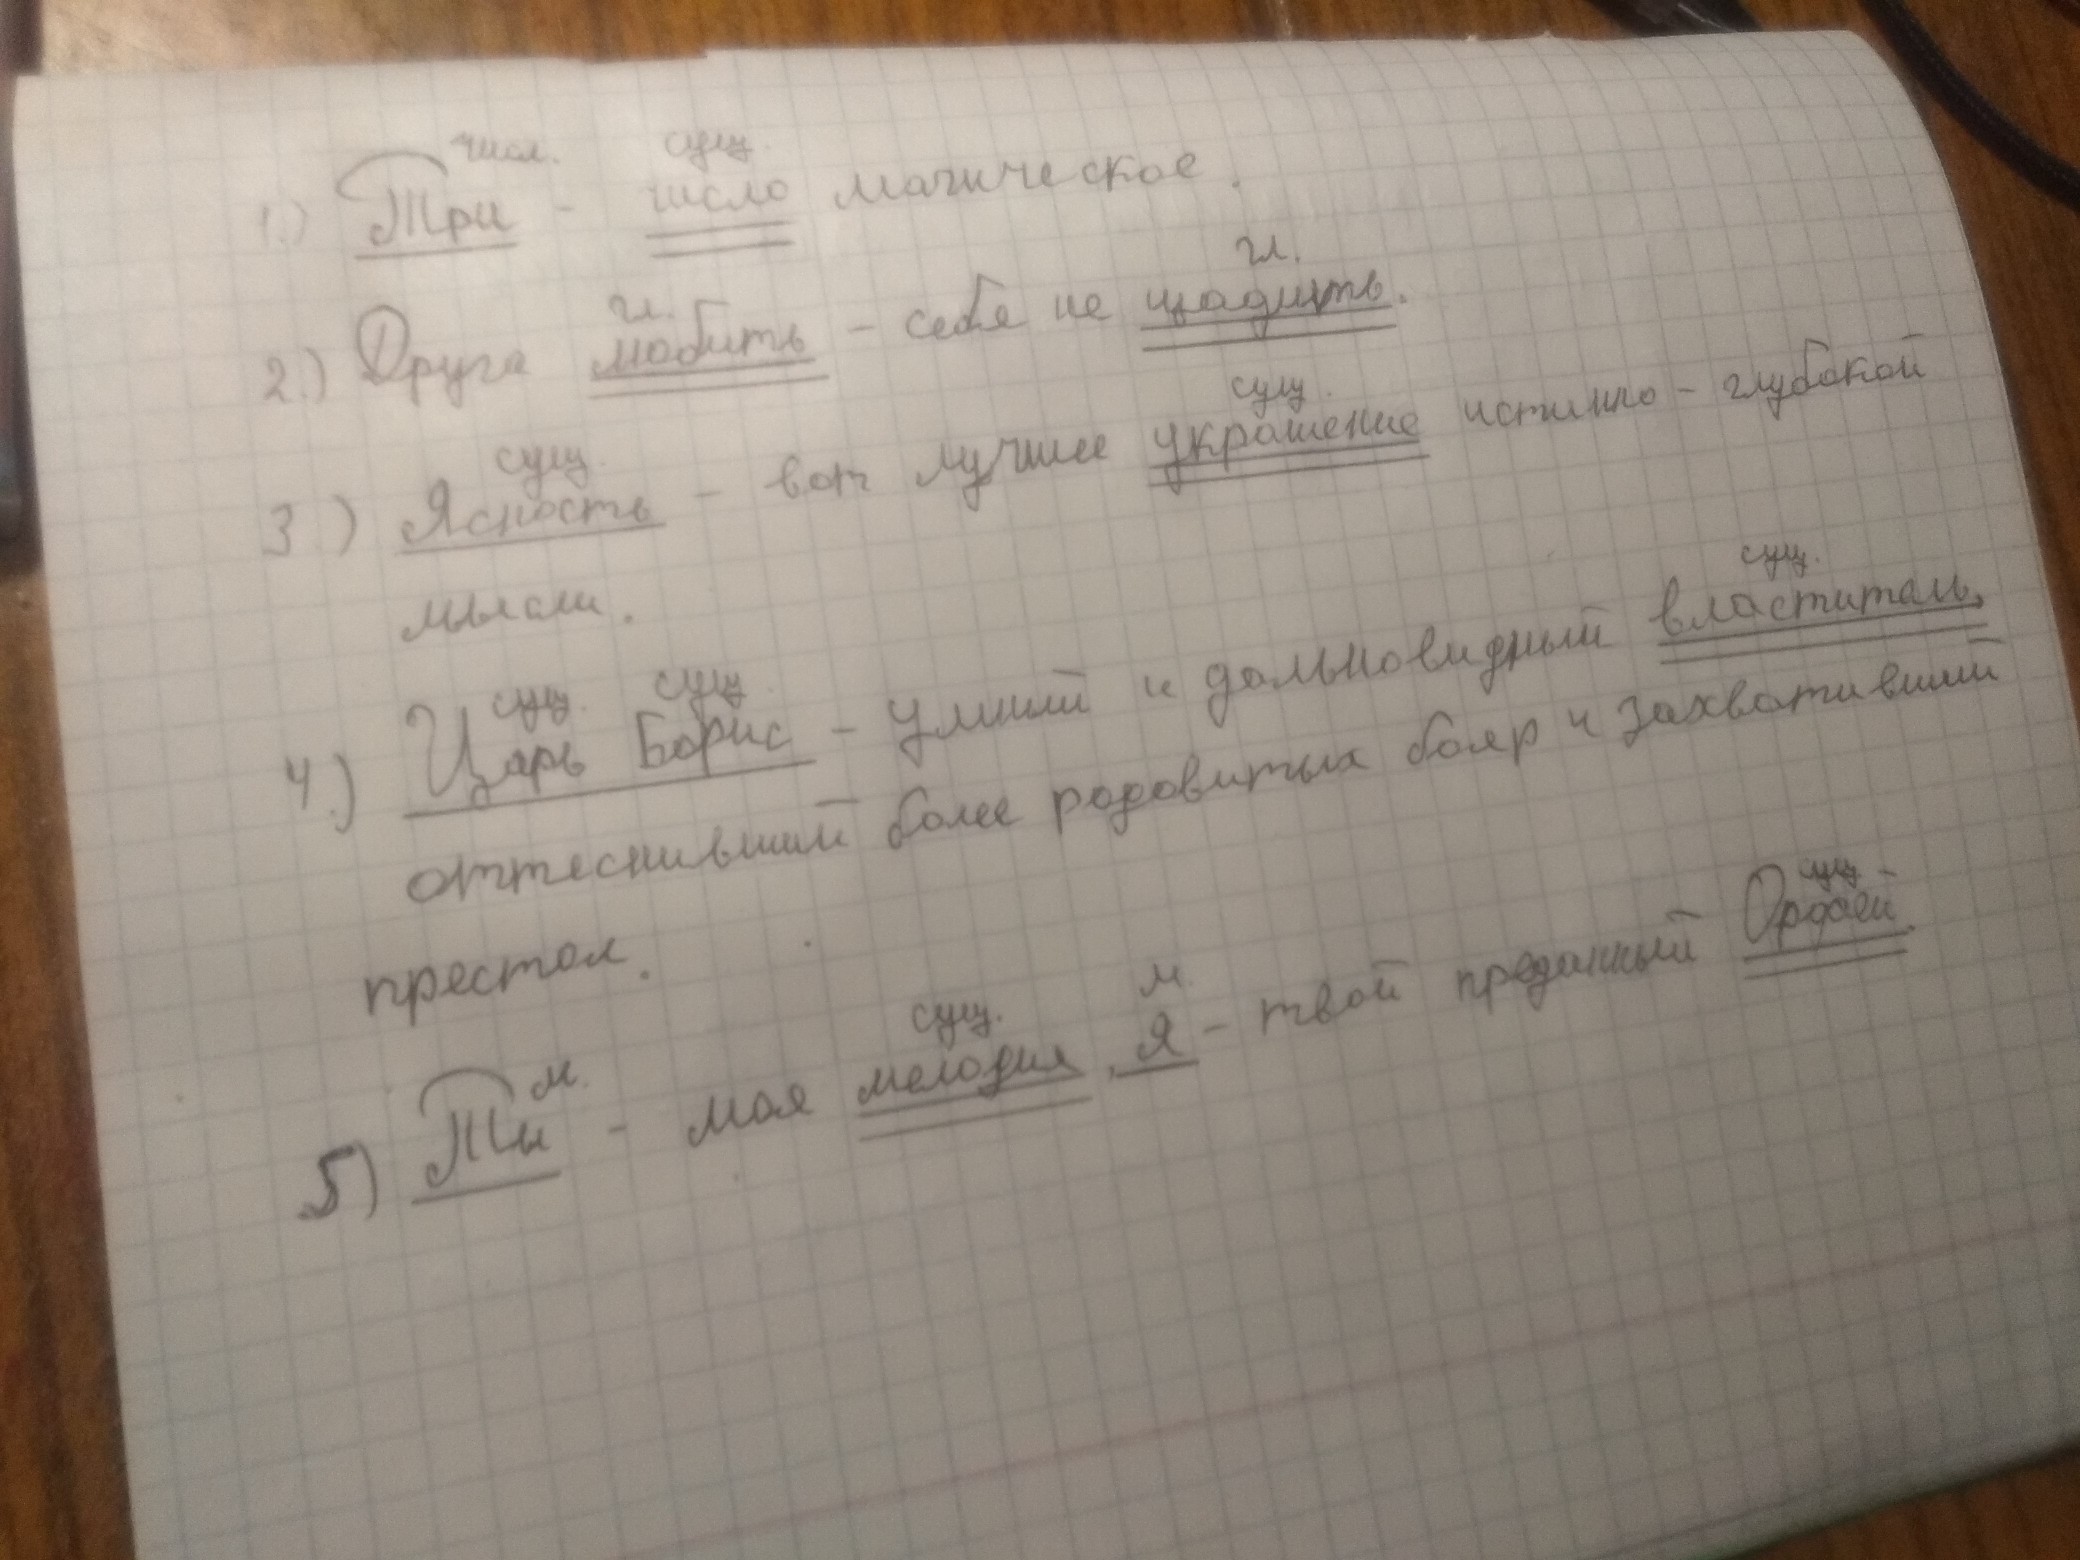 числ. сущ.
1.) Три - число магическое.
гл. гл.
2.) Друга любить - себя не щадить.
сущ. сущ.
3) Ясность - вот лучшее украшение истинно - глубокой
мысли.
сущ. сущ. сущ.
4.) Царь Борис - умный и дальновидный властитель,
оттеснивший более родовитых бояр и захвативший
престол.
м. сущ. м сущ.
5) Ты - моя мелодия, я - твой преданный Орфей.